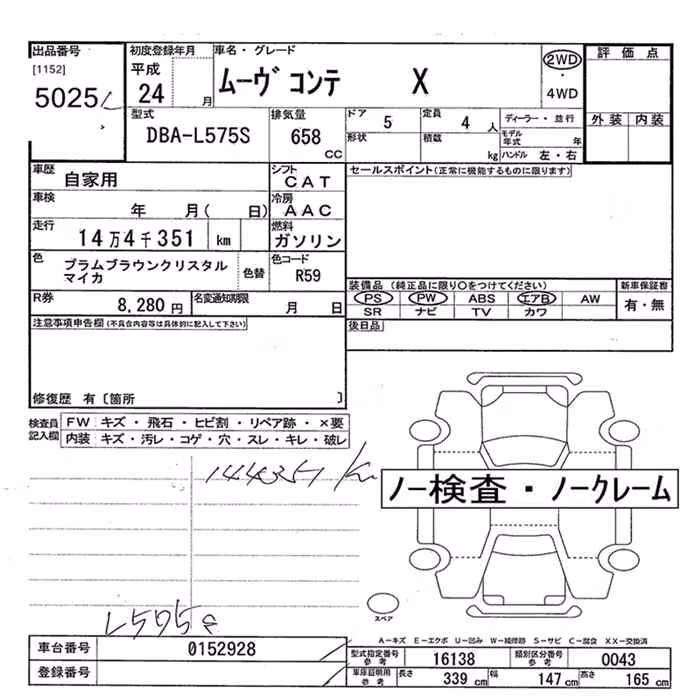 出品番号 初度登録年月 車名・グレード 2WD・4WD 評価点
[1152] 平成
5025 24 月 ムーヴ コンテ X 外装 内装
型式 排気量 ドア 5 定員 4 人 ディーラー・並行
DBA-L575S 658 CC 形状 積載 kg モデル年式 年 ハンドル 左・右
車歴 自家用 シフト CAT セールスポイント(正常に機能するものに限ります)
車検 年 月( 日) 冷房 AAC
走行 14万4千351 km 燃料 ガソリン
色 プラムブラウンクリスタル 色替 色コード R59
マイカ
装備品 (純正品に限り○をつけてください) 新車保証書
R券 8,280 円 名変通知期限 月 日 PS PW ABS エアB AW 有・無
SR ナビ TV カワ
注意事項申告欄(不具合内容等は具体的に記入して下さい) 後日品
修復歴 有〔箇所 〕
検査員記入欄 FW キズ・飛石・ヒビ割・リペア跡・×要
内装 キズ・汚レ・コゲ・穴・スレ・キレ・破レ
144351 km
ノー検査・ノークレーム
スペア
L575S
A-キズ E-エクボ U-凹み W-補修跡 S-サビ C-腐食 XX-交換済
車台番号 0152928 型式指定番号 参考 16138 類別区分番号 参考 0043
登録番号 車庫証明用 参考 長さ 339 cm 幅 147 cm 高さ 165 cm